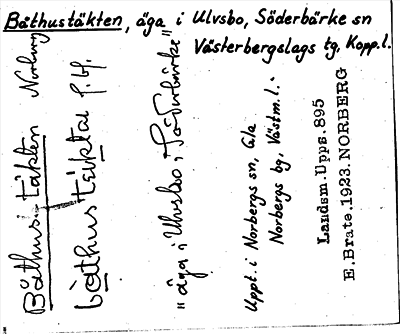 Båthustäkten, äga i Ulvsbo, Söderbärke sn
Västerbergslags tg, Kopp.l.
Båthustäkten Norberg
båthustäktaι f. bf.
"äga i Ulvsbo i Söderbärke"
Uppt. i Norbergs sn, Gla
Norbergs bg, Västm.l.
Landsm.Upps.895
E.Brate.1923.NORBERG